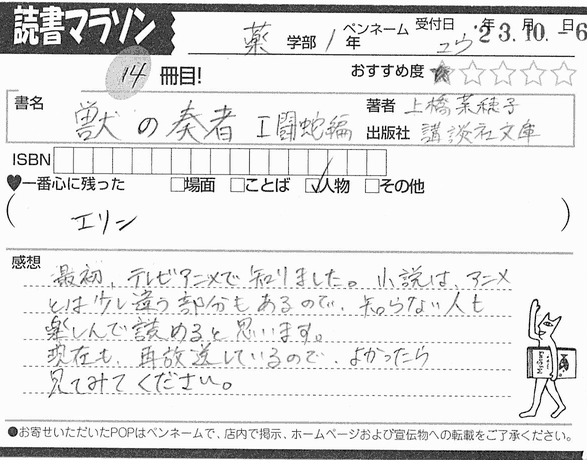 読書マラソン
薬 学部 1 年
ペンネーム ユウ
受付日 '23.10.-6 年 月 日
14 冊目!
おすすめ度 ★☆☆☆☆
書名 獣の奏者 I闘蛇編
著者 上橋菜穂子
出版社 講談社文庫
ISBN
♥一番心に残った □場面 □ことば ☑人物 □その他
( エリン )
感想
最初、テレビアニメで知りました。小説は、アニメ
とは少し違う部分もあるので、知らない人も
楽しんで読めると思います。
現在も、再放送しているので、よかったら
見てみてください。
●お寄せいただいたPOPはペンネームで、店内で掲示、ホームページおよび宣伝物への転載をご了承ください。